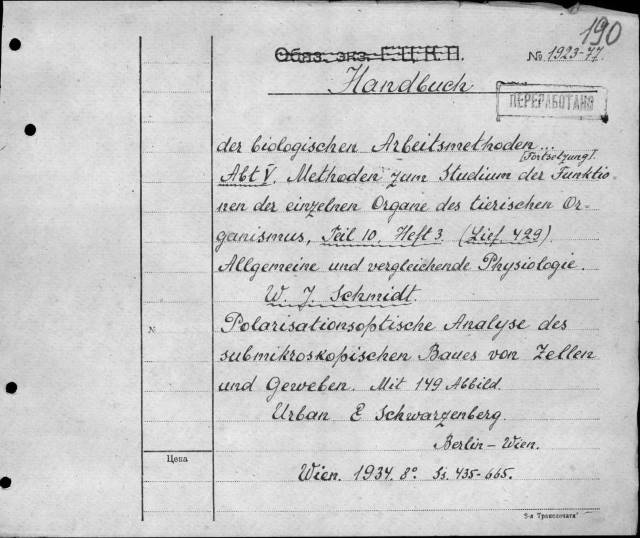 190
Обяз. экз. Г.Ц.К.П.
№ 1923-77.
Handbuch
ПЕРЕРАБОТАНО
der biologischen Arbeitsmethoden...
[Fortsetzung].
Abt V. Methoden zum Studium der Funktio-
nen der einzelnen Organe des tierischen Or-
ganismus, Teil 10, Heft 3. (Lief. 429).
Allgemeine und vergleichende Physiologie.
W. J. Schmidt.
№
Polarisationsoptische Analyse des
submikroskopischen Baues von Zellen
und Geweben. Mit 149 Abbild.
Urban & Schwarzenberg.
Berlin - Wien.
Цена
Wien. 1934. 8°. Ss. 435-665.
5-я Транспечать